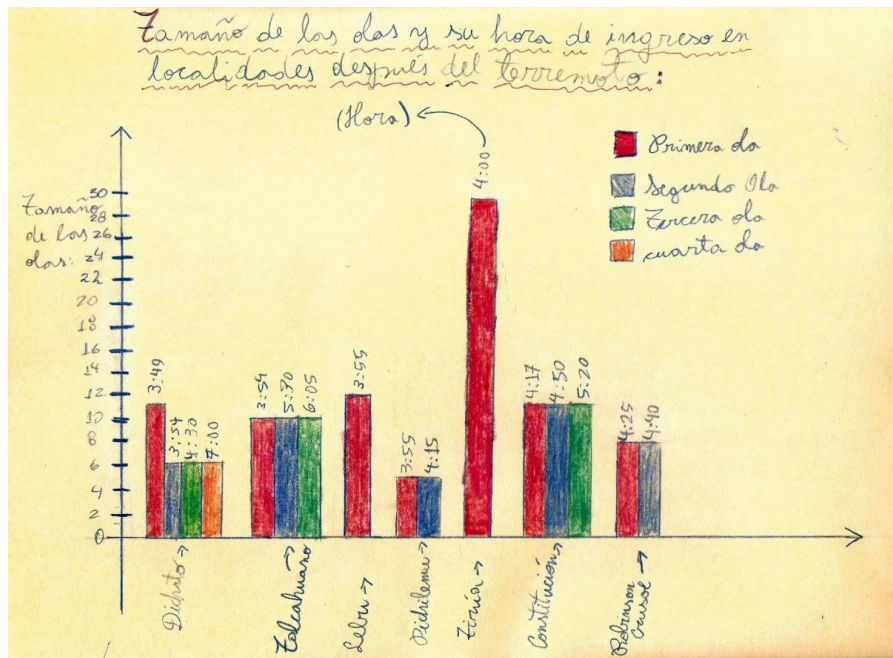 Tamaño de las olas y su hora de ingreso en
localidades después del terremoto:
(Hora)
Primera ola
Segundo Ola
Tercera ola
cuarta ola
Tamaño
de las
olas:
30
28
26
24
22
20
18
16
14
12
10
8
6
4
2
0
3:49
3:54
4:30
7:00
3:54
5:30
6:05
3:55
3:55
4:15
4:00
4:17
4:50
5:20
4:25
4:40
Dichato →
Talcahuano →
Lebu →
Pichilemu →
Tirúa →
Constitución →
Robinson →
Crusoe